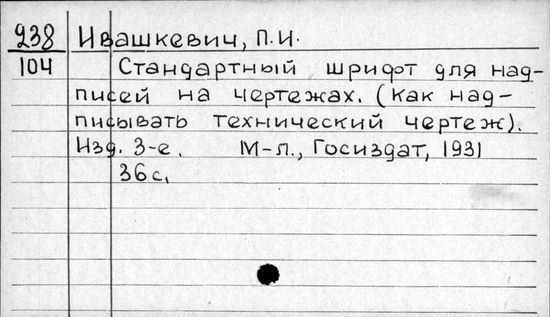 238 Ивашкевич, П.И.
104 Стандартный шрифт для над-
писей на чертежах. (Как над-
писывать технический чертеж).
Изд. 3-е. М-Л., Госиздат, 1931
36 с.